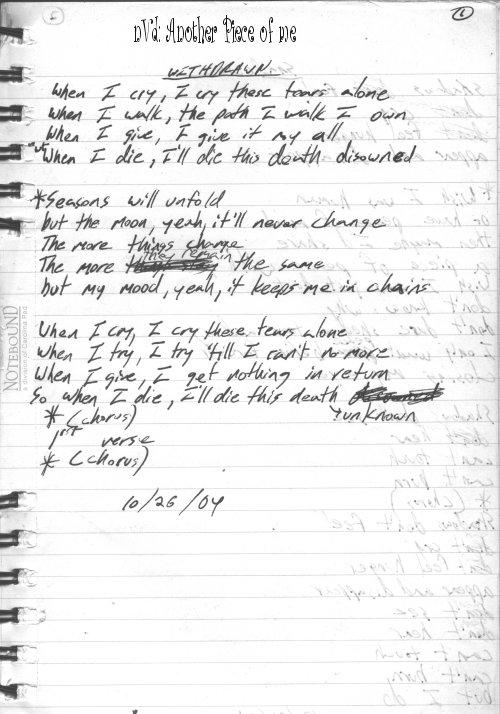 nVd: Another Piece of me
WITHDRAWN
When I cry, I cry these tears alone
When I walk, the path I walk I own
When I give, I give it my all
When I die, I'll die this death disowned
*Seasons will unfold
but the moon, yeah, it'll never change
The more things change
they remain
The more the same
but my mood, yeah, it keeps me in chains
When I cry, I cry these tears alone
When I try, I try 'till I can't no more
When I give, I get nothing in return
So when I die, I'll die this death
* (chorus) unknown
1st verse
* (chorus)
10/26/04
NOTEBOUND